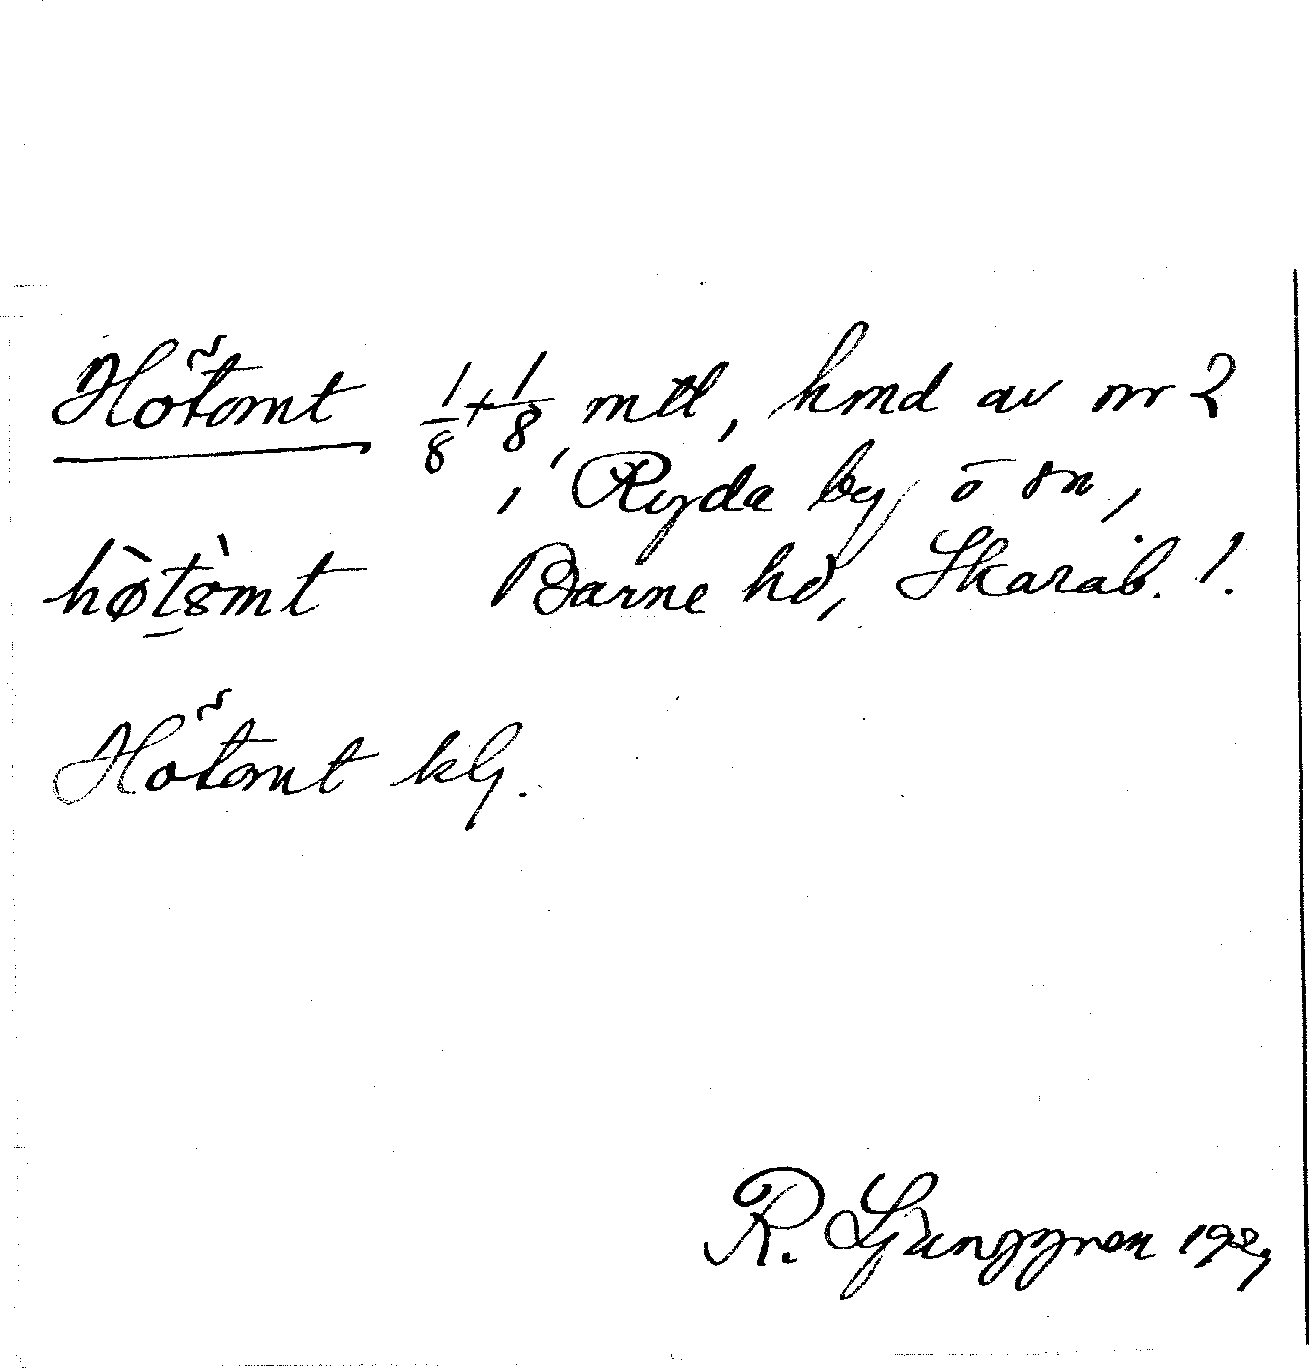 Hötomt 1/8 + 1/8, mtl, hmd av nr 2
i Ryda by o sn,
hò̀tòmt Barne hd, Skarab. l.
Hötomt klg.
R. Ljunggren 192